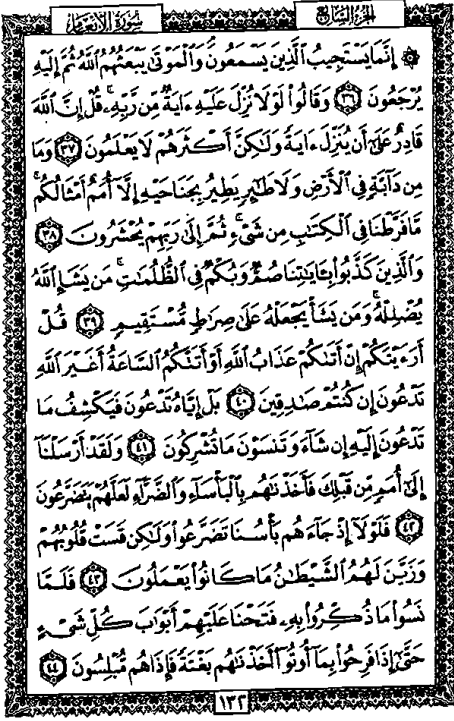 سورة الأنعام
الجزء السابع
۞ إِنَّمَا يَسْتَجِيبُ الَّذِينَ يَسْمَعُونَ وَالْمَوْتَىٰ يَبْعَثُهُمُ اللَّهُ ثُمَّ إِلَيْهِ
يُرْجَعُونَ ٣٦ وَقَالُوا لَوْلَا نُزِّلَ عَلَيْهِ ءَايَةٌ مِّن رَّبِّهِۦ ۚ قُلْ إِنَّ اللَّهَ
قَادِرٌ عَلَىٰ أَن يُنَزِّلَ ءَايَةً وَلَٰكِنَّ أَكْثَرَهُمْ لَا يَعْلَمُونَ ٣٧ وَمَا
مِن دَآبَّةٍ فِي الْأَرْضِ وَلَا طَٰٓئِرٍ يَطِيرُ بِجَنَاحَيْهِ إِلَّآ أُمَمٌ أَمْثَالُكُم ۚ
مَّا فَرَّطْنَا فِي الْكِتَٰبِ مِن شَيْءٍ ۚ ثُمَّ إِلَىٰ رَبِّهِمْ يُحْشَرُونَ ٣٨
وَالَّذِينَ كَذَّبُوا بِـَٔايَٰتِنَا صُمٌّ وَبُكْمٌ فِي الظُّلُمَٰتِ ۗ مَن يَشَإِ اللَّهُ
يُضْلِلْهُ ۚ وَمَن يَشَأْ يَجْعَلْهُ عَلَىٰ صِرَٰطٍ مُّسْتَقِيمٍ ٣٩ قُلْ
أَرَءَيْتَكُمْ إِنْ أَتَىٰكُمْ عَذَابُ اللَّهِ أَوْ أَتَتْكُمُ السَّاعَةُ أَغَيْرَ اللَّهِ
تَدْعُونَ إِن كُنتُمْ صَٰدِقِينَ ٤٠ بَلْ إِيَّاهُ تَدْعُونَ فَيَكْشِفُ مَا
تَدْعُونَ إِلَيْهِ إِن شَآءَ وَتَنسَوْنَ مَا تُشْرِكُونَ ٤١ وَلَقَدْ أَرْسَلْنَآ
إِلَىٰٓ أُمَمٍ مِّن قَبْلِكَ فَأَخَذْنَٰهُم بِالْبَأْسَآءِ وَالضَّرَّآءِ لَعَلَّهُمْ يَتَضَرَّعُونَ
٤٢ فَلَوْلَآ إِذْ جَآءَهُم بَأْسُنَا تَضَرَّعُوا وَلَٰكِن قَسَتْ قُلُوبُهُمْ
وَزَيَّنَ لَهُمُ الشَّيْطَٰنُ مَا كَانُوا يَعْمَلُونَ ٤٣ فَلَمَّا
نَسُوا مَا ذُكِّرُوا بِهِۦ فَتَحْنَا عَلَيْهِمْ أَبْوَٰبَ كُلِّ شَيْءٍ
حَتَّىٰٓ إِذَا فَرِحُوا بِمَآ أُوتُوٓا أَخَذْنَٰهُم بَغْتَةً فَإِذَا هُم مُّبْلِسُونَ ٤٤
١٣٢